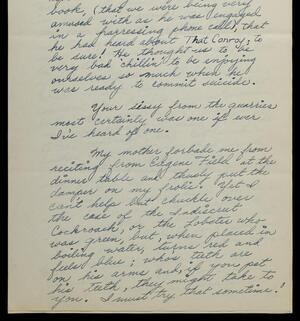 book, (that we were being very
amused with as he was engaged
in a progressing phone call), that
he had heard about That Convoy, to
be sure! He thought us to be
very bad "chillin" to be enjoying
ourselves so much when he
was ready to commit suicide.
Your sissy from the quarries
most certainly was one if ever
I've heard of one.
My mother forbade me from
reciting from Eugene Field at the
dinner table and thusly put the
damper on my frolic. Yet I
can't help but chuckle over
the case of the Indiscreet
Cockroach, or the Lobster who
was green, but, when placed in
boiling water, turns red and
feels blue; who's teeth are
on his arms and, if you pet
his teeth, they might take to
you. I must try that sometime!